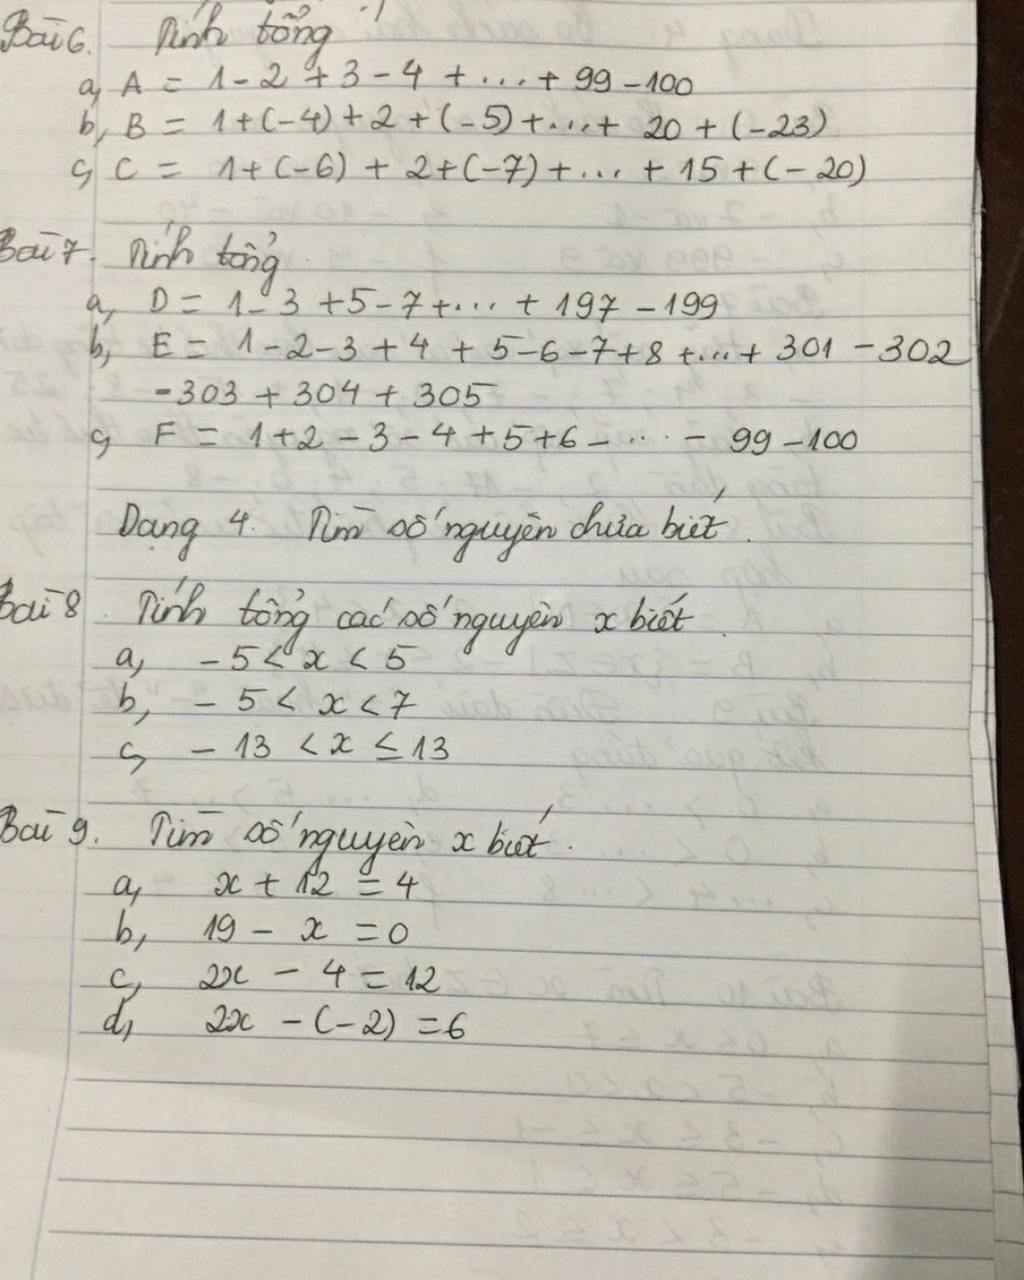 Bài 6. Tính tổng
a, A = 1 - 2 + 3 - 4 + ... + 99 - 100
b, B = 1 + (-4) + 2 + (-5) + ... + 20 + (-23)
c, C = 1 + (-6) + 2 + (-7) + ... + 15 + (-20)
Bài 7. Tính tổng
a, D = 1 - 3 + 5 - 7 + ... + 197 - 199
b, E = 1 - 2 - 3 + 4 + 5 - 6 - 7 + 8 + ... + 301 - 302
- 303 + 304 + 305
c, F = 1 + 2 - 3 - 4 + 5 + 6 - ... - 99 - 100
Dạng 4. Tìm số nguyên chưa biết.
Bài 8. Tính tổng các số nguyên x biết.
a, - 5 < x < 5
b, - 5 < x < 7
c, - 13 < x ≤ 13
Bài 9. Tìm số nguyên x biết.
a, x + 12 = 4
b, 19 - x = 0
c, 2x - 4 = 12
d, 2x - (-2) = 6